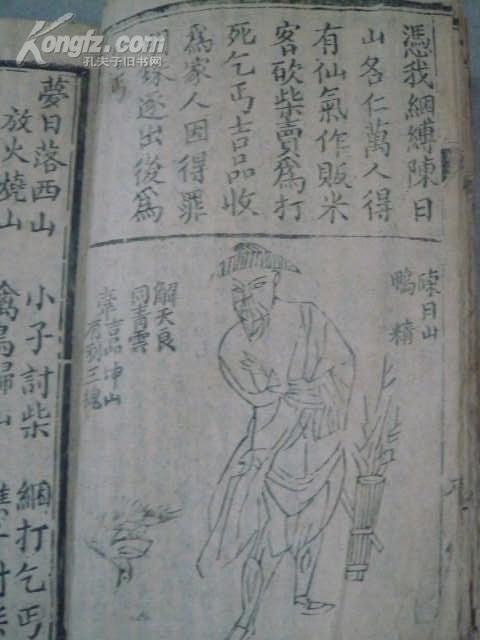 Kongfz.com
孔夫子旧书网
憑我綑縛陳日
山名仁萬人得
有仙氣作販米
客砍柴賣為打
死乞丐吉品收
為家人因得罪
逐出後為
丐
陳日山
鴨精
解天良
同青雲
吉品坤山
夢日落西山 小子討柴 綑打乞丐
放火燒山 禽鳥歸山